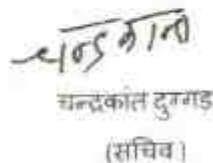 चन्द्रकान्त
चन्द्रकांत दुग्गड़
(सचिव)